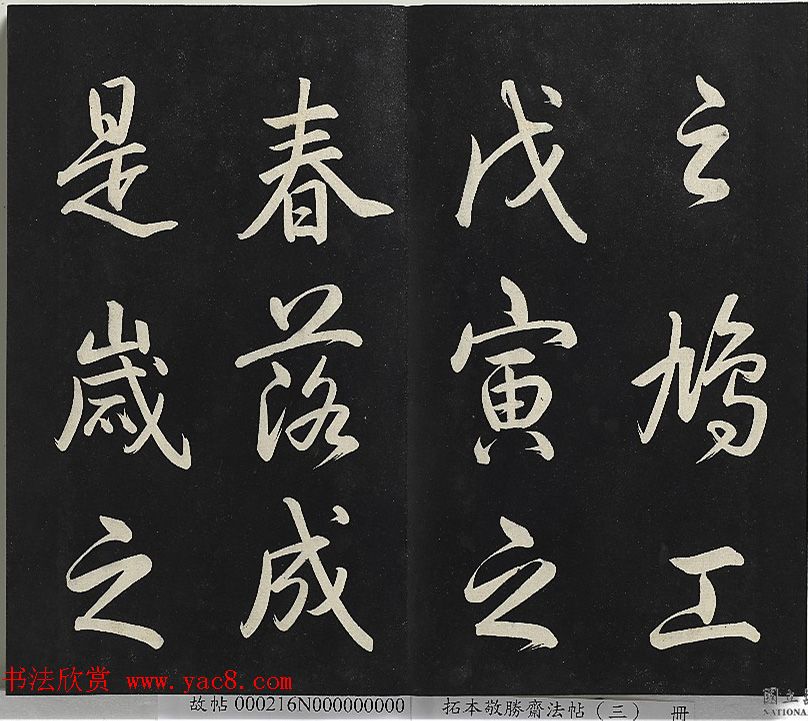 之鳩工
戊寅之
春落成
是歲之
书法欣赏 www.yac8.com
故帖 000216N000000000 拓本敬勝齋法帖（三） 冊
國立
NATIONA